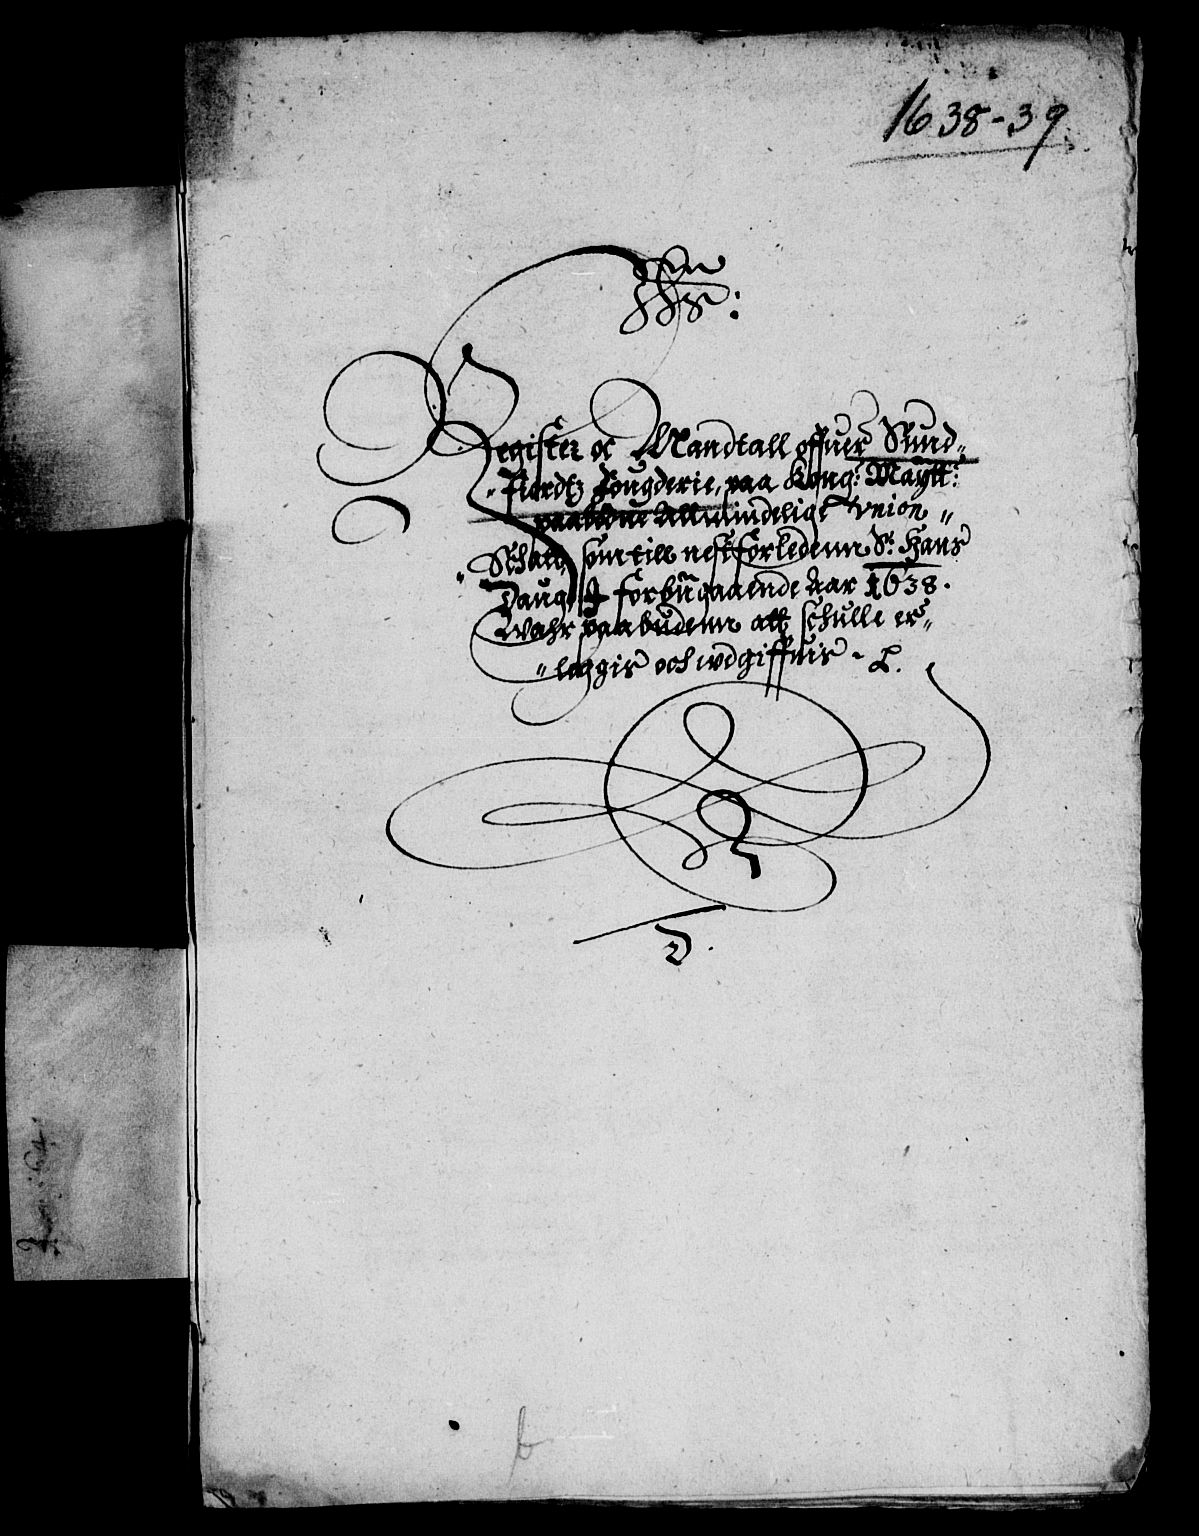 1638-39
Register oc Mandtall offuer Sund„
„fiordtz fougderie, paa Kong: Maÿtt:
paabudne Allmindeligt Vnion„
„Schatt, som till nestforledenn St. Hans
Daug I forbÿgaaende Aar 1638.
Wahr paabudenn att schulle er„
„leggis och wdgiffuis
b